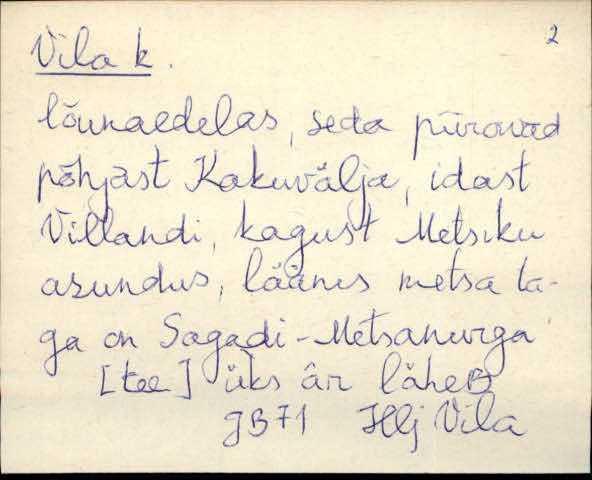 2
Vila k.
lõunaedelas, seda piiravad
põhjast Kakuvälja, idast
Villandi, kagust Metsiku
asundus, läänes metsa ta-
ga on Sagadi-Metsanurga
[tee] üks âr läheB
JB71 Hlj Vila